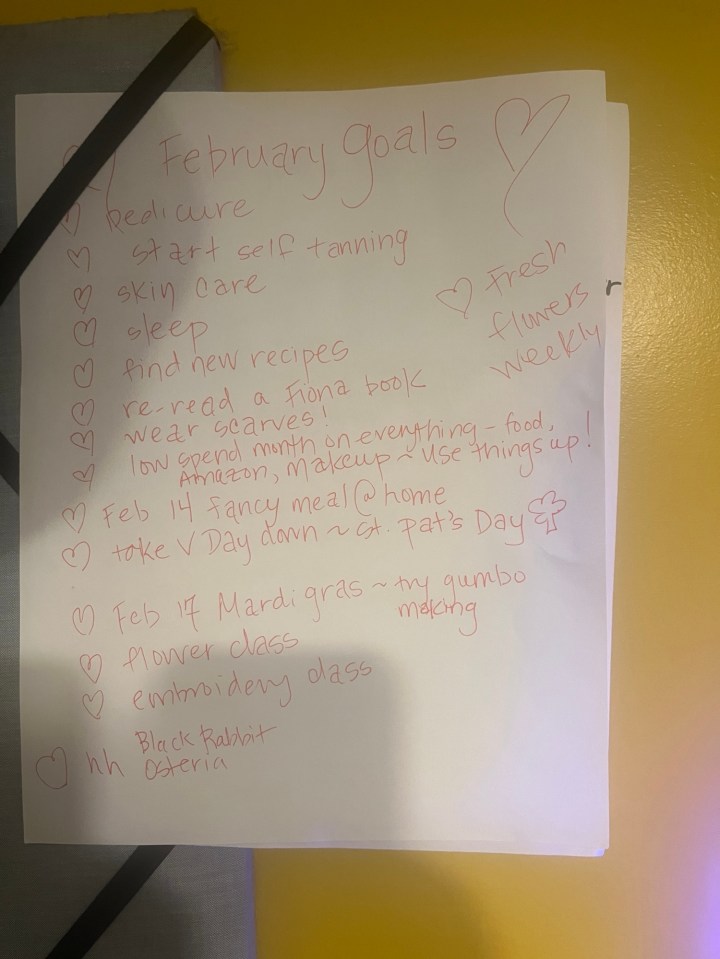 February goals
pedicure
start self tanning
skin care
sleep
find new recipes
re-read a Fiona book
wear scarves!
low spend month on everything - food,
Amazon, makeup ~ use things up!
Feb 14 fancy meal @ home
take V Day down ~ St. pat's Day
Feb 17 Mardi gras ~ try gumbo
making
flower class
embroidery class
hh Black Rabbit
Osteria
Fresh
flowers
weekly
r